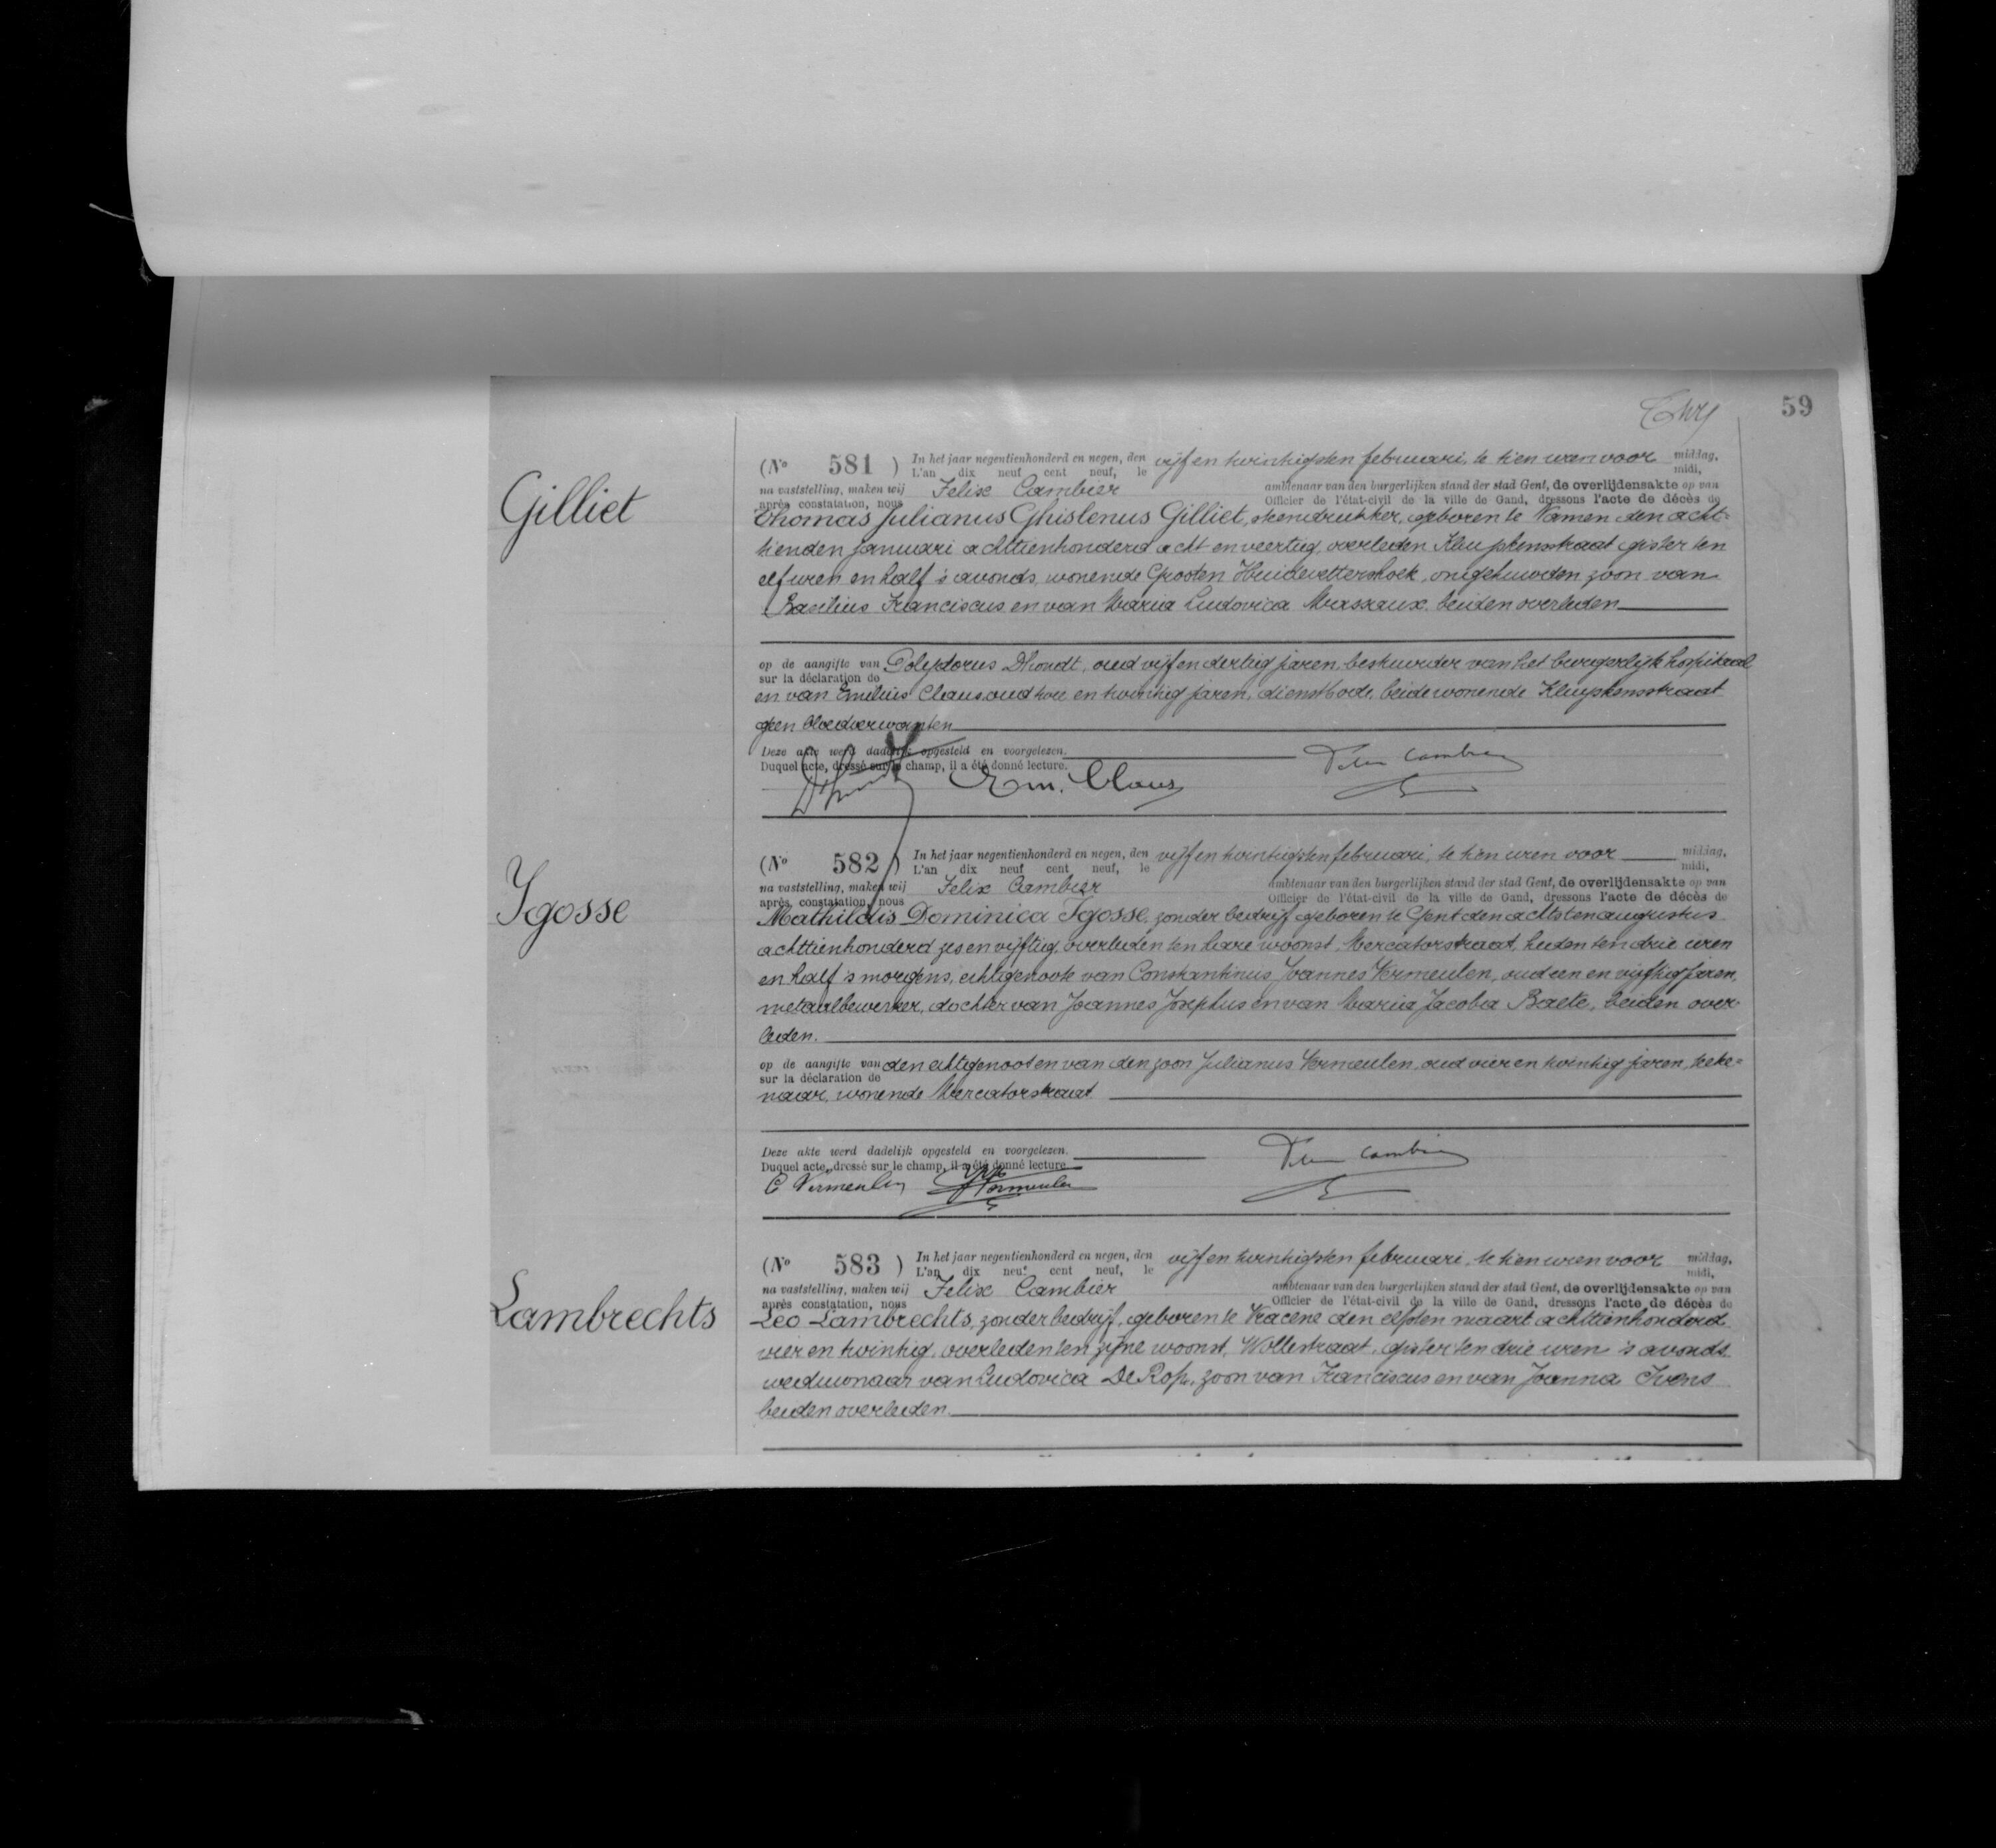 59
Gilliet
(No 581) In het jaar negentienhonderd en negen, den vijf en twintigsten februari, te tien uren voor middag,
L'an dix neuf cent neuf, le midi,
na vaststelling, maken wij Felix Cambier ambtenaar van den burgerlijken stand der stad Gent, de overlijdensakte op van
après constatation, nous Officier de l'état-civil de la ville de Gand, dressons l'acte de décès de
Thomas Julianus Ghislenus Gilliet, steendrukker, geboren te Namen den acht=
tienden januari achttienhonderd acht en veertig, overleden Kluyskensstraat gister ten
elf uren en half 's avonds, wonende Grooten Huidevettershoek, ongehuwden zoon van
Basilius Franciscus en van Maria Ludovica beiden overleden
op de aangifte van Polydorus Dhondt, oud vijf en dertig jaren, bestuurder van het burgerlijk hospitaal
sur la déclaration de
en van Emilius Claus, oud twee en twintig jaren, dienstbode, beide wonende Kluyskensstraat
geen bloedverwanten
Deze akte werd dadelijk opgesteld en voorgelezen.
Duquel acte, dressé sur le champ, il a été donné lecture.
Dhondt Em. Claus Felix Cambier
Igosse
(No 582) In het jaar negentienhonderd en negen, den vijf en twintigsten februari, te tien uren voor middag,
L'an dix neuf cent neuf, le midi,
na vaststelling, maken wij Felix Cambier ambtenaar van den burgerlijken stand der stad Gent, de overlijdensakte op van
après constatation, nous Officier de l'état-civil de la ville de Gand, dressons l'acte de décès de
Mathildis Dominica Igosse, zonder bedrijf, geboren te Gent den achtsten augustus
achttienhonderd zes en vijftig, overleden ten hare woonst, Mercatorstraat, heden ten drie uren
en half 's morgens, echtgenoote van Constantinus Joannes Vermeulen, oud een en vijftig jaren,
metaalbewerker, dochter van Joannes Josephus en van Maria Jacoba Baete, beiden over=
leden.
op de aangifte van den echtgenoot en van den zoon Julianus Vermeulen, oud vier en twintig jaren, teke=
sur la déclaration de
naar, wonende Mercatorstraat
Deze akte werd dadelijk opgesteld en voorgelezen.
Duquel acte, dressé sur le champ, il a été donné lecture.
C Vermeulen Vermeulen Felix Cambier
Lambrechts
(No 583) In het jaar negentienhonderd en negen, den vijf en twintigsten februari, te tien uren voor middag,
L'an dix neuf cent neuf, le midi,
na vaststelling, maken wij Felix Cambier ambtenaar van den burgerlijken stand der stad Gent, de overlijdensakte op van
après constatation, nous Officier de l'état-civil de la ville de Gand, dressons l'acte de décès de
Leo Lambrechts, zonder bedrijf, geboren te Vracene den elfsten maart achttienhonderd
vier en twintig, overleden ten zijne woonst, Wollestraat, gister ten drie uren 's avonds
weduwnaar van Ludovica De Rop, zoon van Franciscus en van Joanna Ivens
beiden overleden